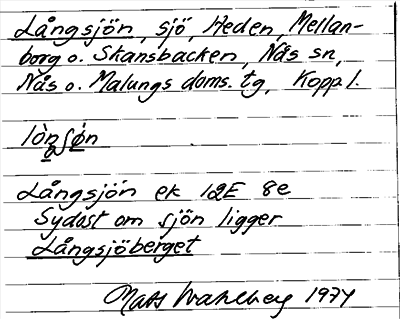 Långsjön, sjö, Heden, Mellan-
borg o. Skansbacken, Nås sn,
Nås o. Malungs doms. tg, Kopp. l.
Långsjön ek 12E 8e
Sydost om sjön ligger
Långsjöberget
Mats Wahlberg 1974